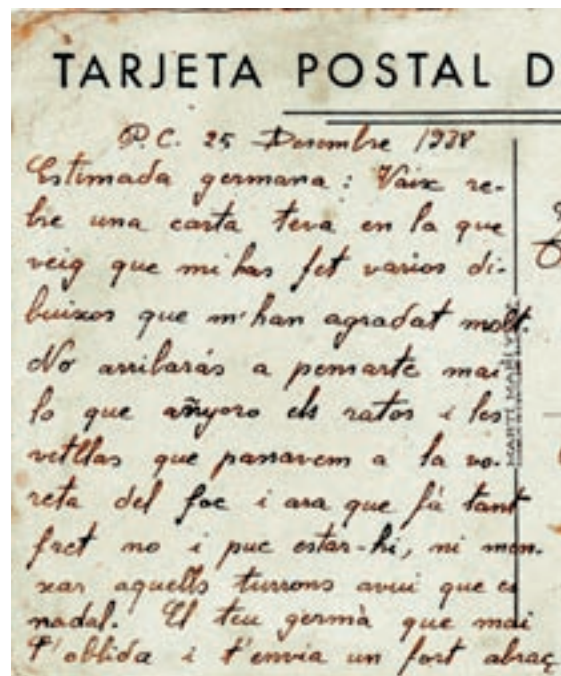 TARJETA POSTAL D
P.C. 25 Desembre 1938
Estimada germana: Vaix re-
bre una carta teva en la que
veig que mi has fet varios di-
buixos que m'han agradat molt.
No arribarás a pensarte mai
lo que añyoro els ratos i les
vetllas que passavem a la vo-
reta del foc i ara que fá tant
fret no i puc estar-hi, ni men-
xar aquells turrons avui que es
nadal. El teu germà que mai
t'oblida i t'envia un fort abraç